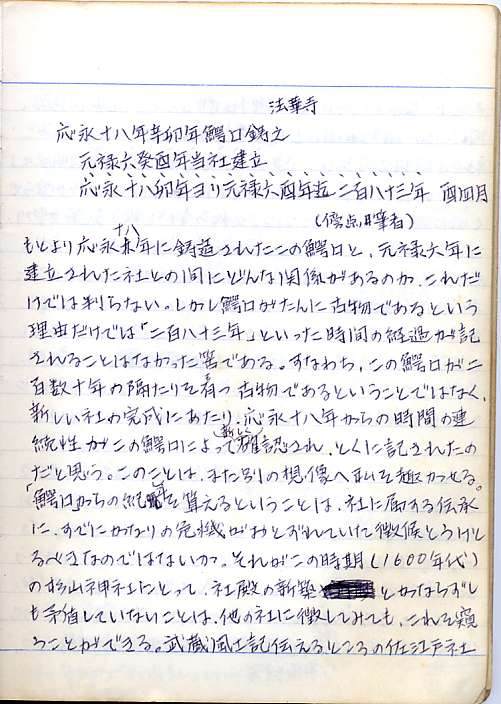 法華寺
応永十八年辛卯年鰐口鋳之
元禄六癸酉年当社建立
応永十八卯年ヨリ元禄六酉年迄二百八十三年 酉四月
(傍点は筆者)
十八
もとより応永年に鋳造されたこの鰐口と、元禄六年に
建立された社との間にどんな関係があるのか、これだ
けでは判らない。しかし鰐口がたんに古物であるという
理由だけでは「二百八十三年」といった時間の経過が記
されることはなかった筈である。すなわち、この鰐口が二
百数十年の隔たりを有つ古物であるということではなく、
新しい社の完成にあたり、応永十八年からの時間の連
続性がこの鰐口によって新しく確認され、とくに記されたの
だと思う。このことは、また別の想像へ私を趣かせる。
「鰐口」からの紀年を算えるということは、社に属する伝承
に、すでにかなりの危機がおとずれていた徴候とうけと
るべきなのではないか。それがこの時期(1600年代)
の杉山神社にとって、社殿の新築とかならずし
も矛盾していないことは、他の社に徴してみても、これを窺
うことができる。武蔵風土記伝えるところの佐江戸社